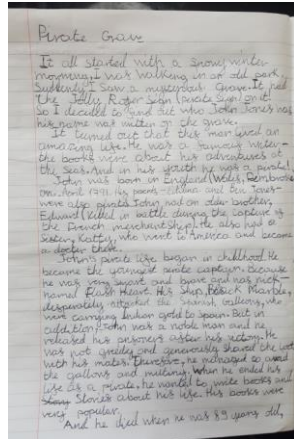 Pirate Grave
It all started with a snowy winter
morning, I was walking in an old park.
Suddenly I saw a mysterious grave. It had
the Jolly Roger Sign (pirate sign) on it!
So I decided to find out who John Jones was
his name was written on the grave.
It turned out that this man lived an
amazing life. He was a famous writer-
the books were about his adventures at
the seas. And in his youth he was a pirate!
John was born in England (Wales, Pembroke
on April 1791. His parents - and Ben Jones-
were also pirates. John had an older brother,
Edward (killed in battle during the capture of
the French merchantship). He also had a
sister, Katty, who went to America and became
a doctor there.
John's pirate life began in childhood. He
became the youngest pirate captain. Because
he was very smart and brave and was nick-
named Heart. His ship, Black Marble,
desperately attacked the Spanish galleons, who
were carrying Indian gold to Spain. But in
addition, John was a noble man and he
released his prisoners after his victory. He
was not greedy and generously shared the loot
with his mates. Therefore, he managed to avoid
the gallows and mutiny. When he ended his
life as a pirate, he wanted to write books and
stories about his life. His books were
very popular.
And he died when he was 89 years old,